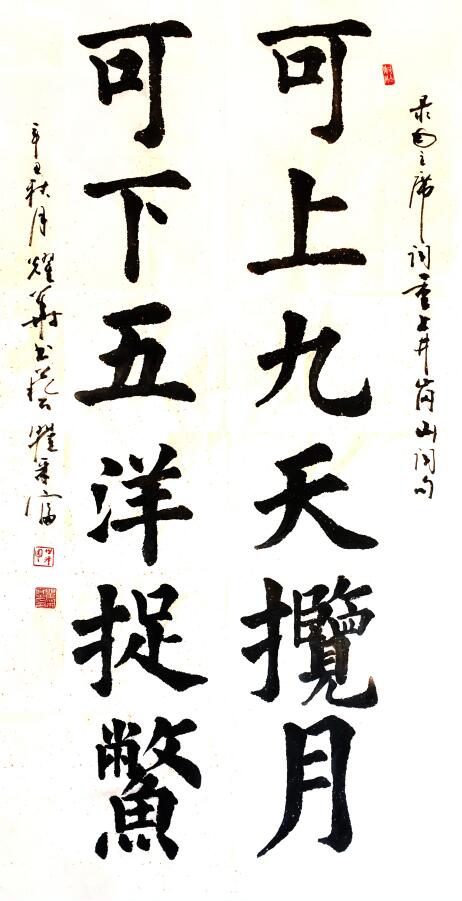 录毛主席词重上井岗山词句
可上九天攬月
可下五洋捉鱉
辛丑秋月耀華书於